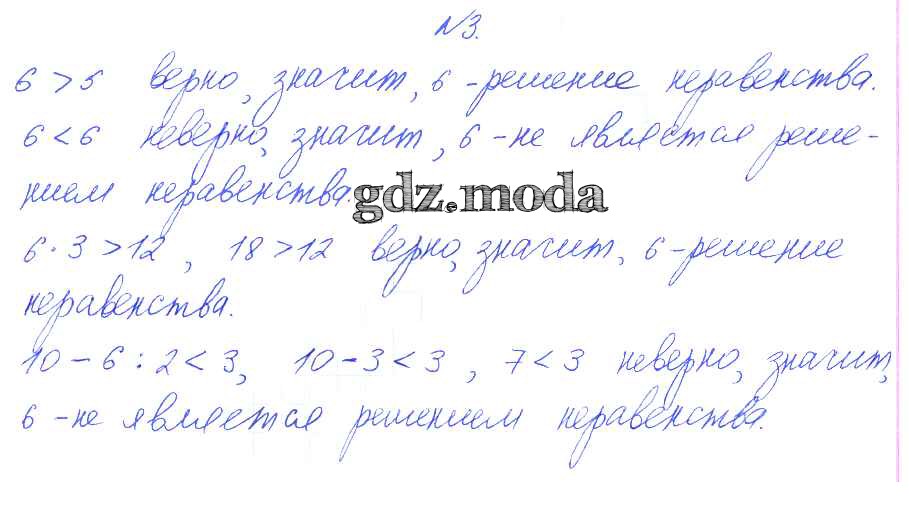 №3.
6 > 5 верно, значит, 6 - решение неравенства.
6 < 6 неверно, значит, 6 - не является реше-
нием неравенства.
gdz.moda
6 · 3 > 12, 18 > 12 верно, значит, 6 - решение
неравенства.
10 - 6 : 2 < 3, 10 - 3 < 3, 7 < 3 неверно, значит,
6 - не является решением неравенства.